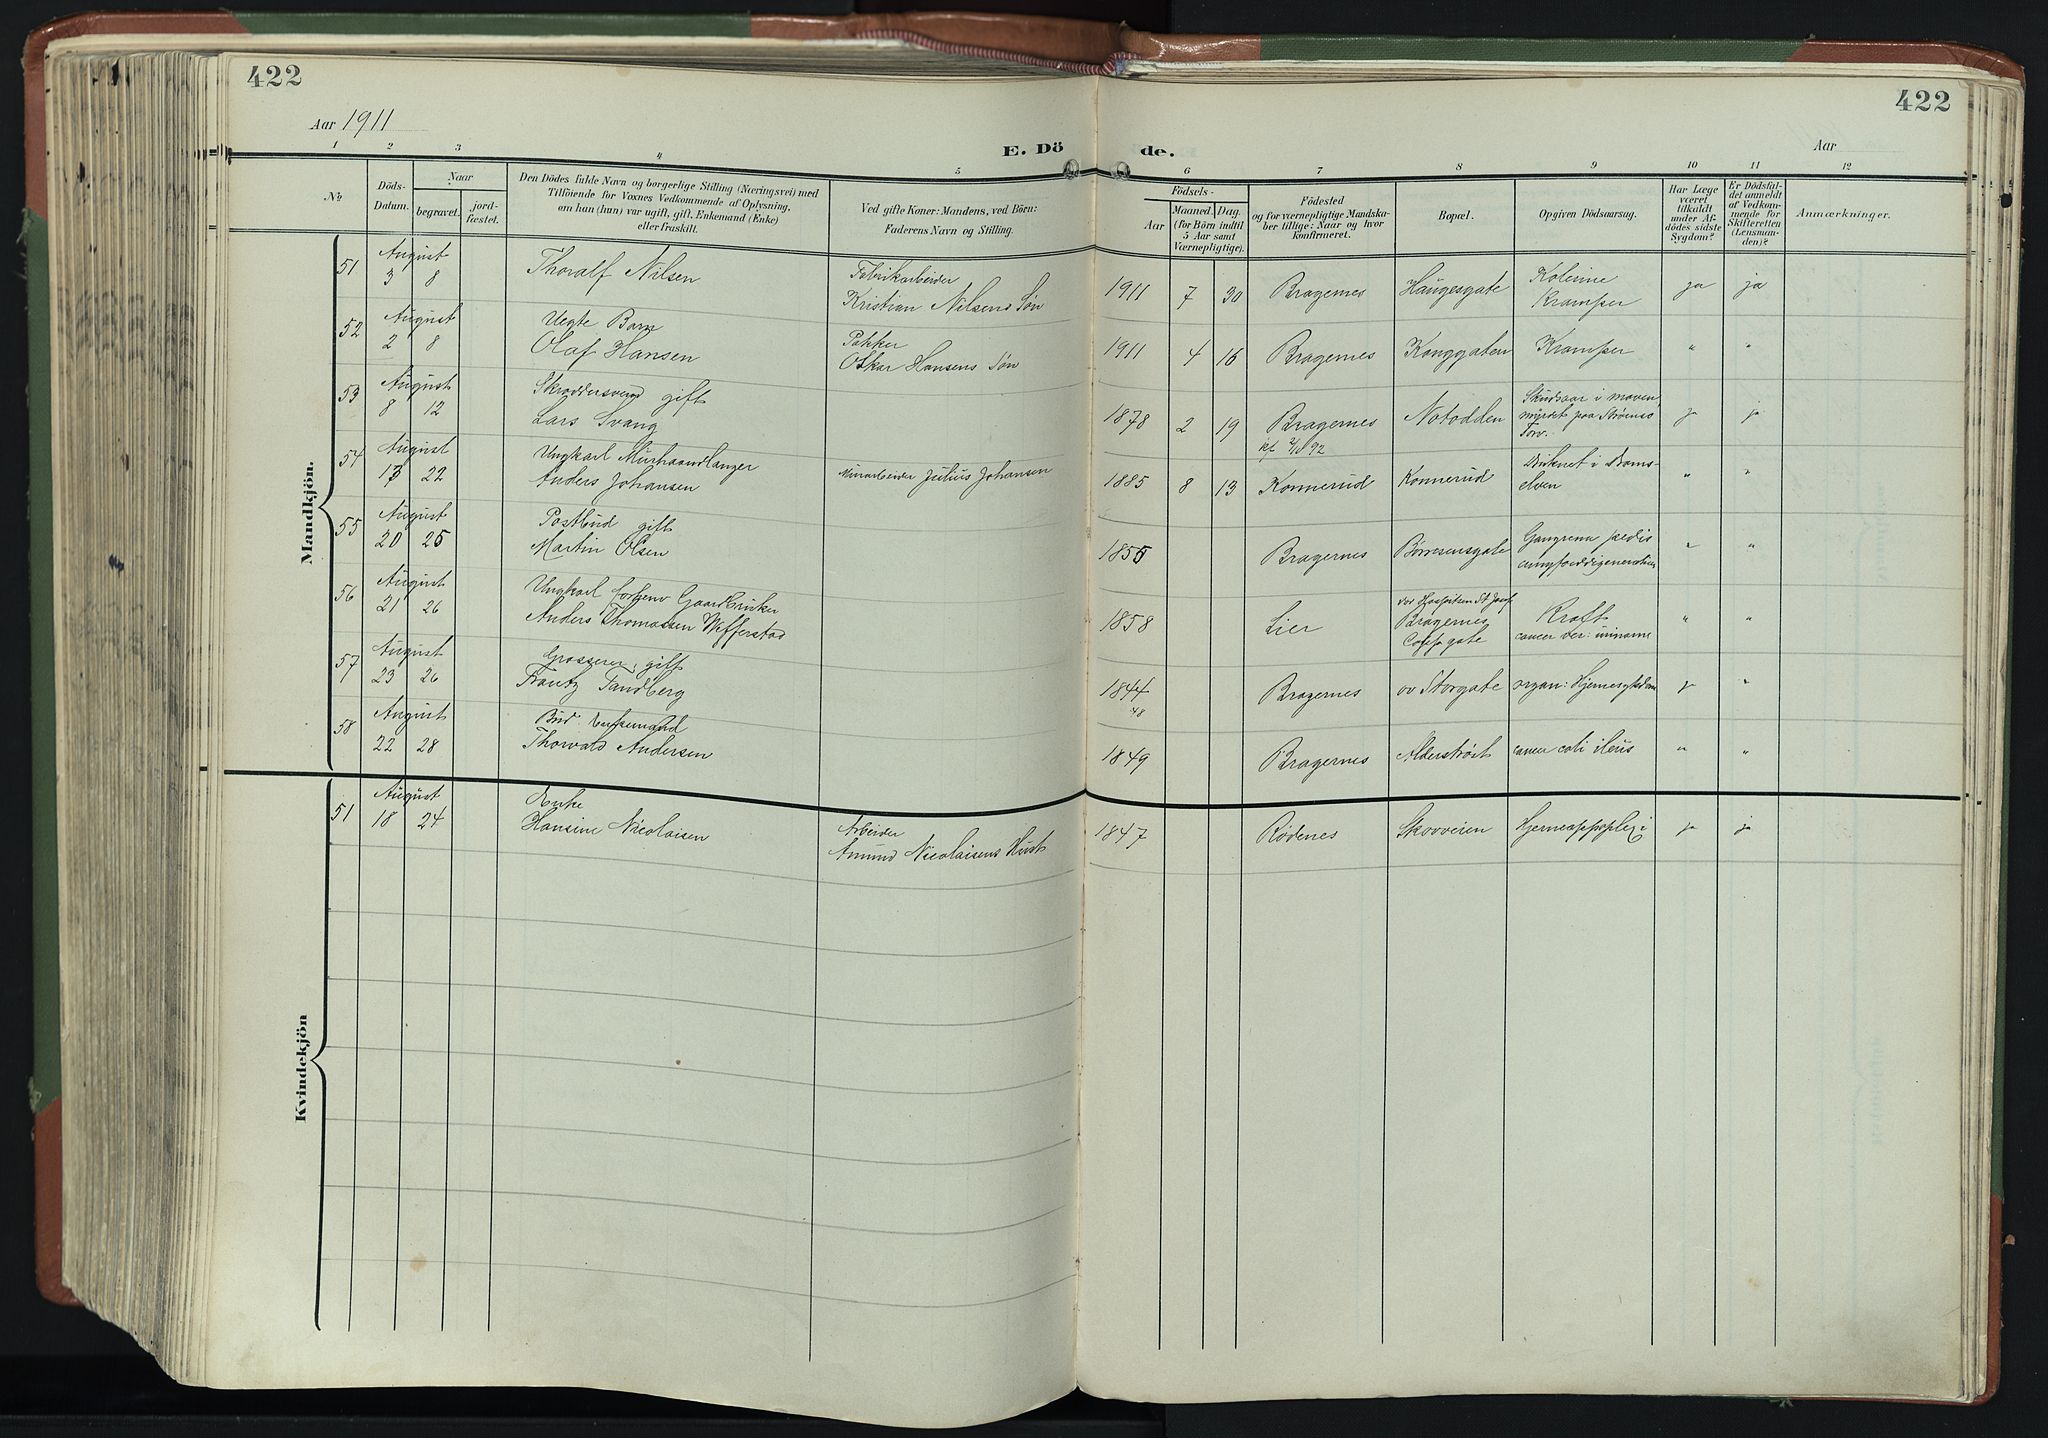 422
422
Aar 1911
E. Dö
de.
Aar
1 2 3 4 5 6 7 8 9 10 11 12
No
Döds-
Datum.
Naar
begravet.
jord-
fæstet.
Den Dödes fulde Navn og borgerlige Stilling (Næringsvei) med
Tilföiende for Voxnes Vedkommende af Oplysning,
om han (hun) var ugift, gift, Enkemand (Enke)
eller fraskilt.
Ved gifte Koner: Mandens, ved Börn:
Faderens Navn og Stilling.
Födsels-
Aar
Maaned.
Dag.
(for Börn indtil
5 Aar samt
Værnepligtige).
Födested
og for værnepligtige Mandska-
ber tillige: Naar og hvor
konfirmeret.
Bopæl.
Opgiven Dödsaarsag.
Har Læge
været
tilkaldt
under Af-
dödes sidste
Sygdom?
Er Dödsfal-
det anmeldt
af Vedkom-
mende for
Skifteretten
(Lensman-
den)?
Anmærkninger.
Mandkjön.
51 August 3 8 Thoralf Nilsen Fabrikarbeider
Kristian Nilsens Søn 1911 7 30 Bragernes Haugesgate Kolerine
Kramper ja ja
52 August 2 8 Uegte Barn
Olaf Hansen Pakker
Oskar Hansens Søn 1911 4 16 Bragernes Konggaten Kramper " "
53 August 8 12 Skræddersvend gift
Lars Svang 1878 2 19 Bragernes Notodden Skudsaar i maven
myrdet paa Strømsø
Torv. ja ja
kf 2/10 92
54 August 17 22 Ungkarl Murhaandlanger
Anders Johansen Murarbeider Julius Johansen 1885 8 13 Konnerud Konnerud Druknet i Drams-
elven " "
55 August 20 25 Postbud gift
Martin Olsen 1855 Bragernes Børresensgate Gangrena pedis
" "
56 August 21 26 Ungkarl forhenv Gaardbruker
Anders Thomassen 1858 Lier Hospitsen St Josef
Bragernes
gate Kræft
cancer " "
57 August 23 26 Grosserer, gift
Frantz Tandberg 1844
48 Bragernes øv Storgate organ: Hjernesykdom ja "
58 August 22 28 Bud Enkemand
Thorvald Andersen 1849 Bragernes Alderstrøst cancer coli ileus " "
Kvindekjön
51 August 18 24 Enke
Hansine Nicolaisen Arbeider
Amund Nicolaisens Hust 1847 Rødenes Skovveien Hjerneapoplexi ja ja